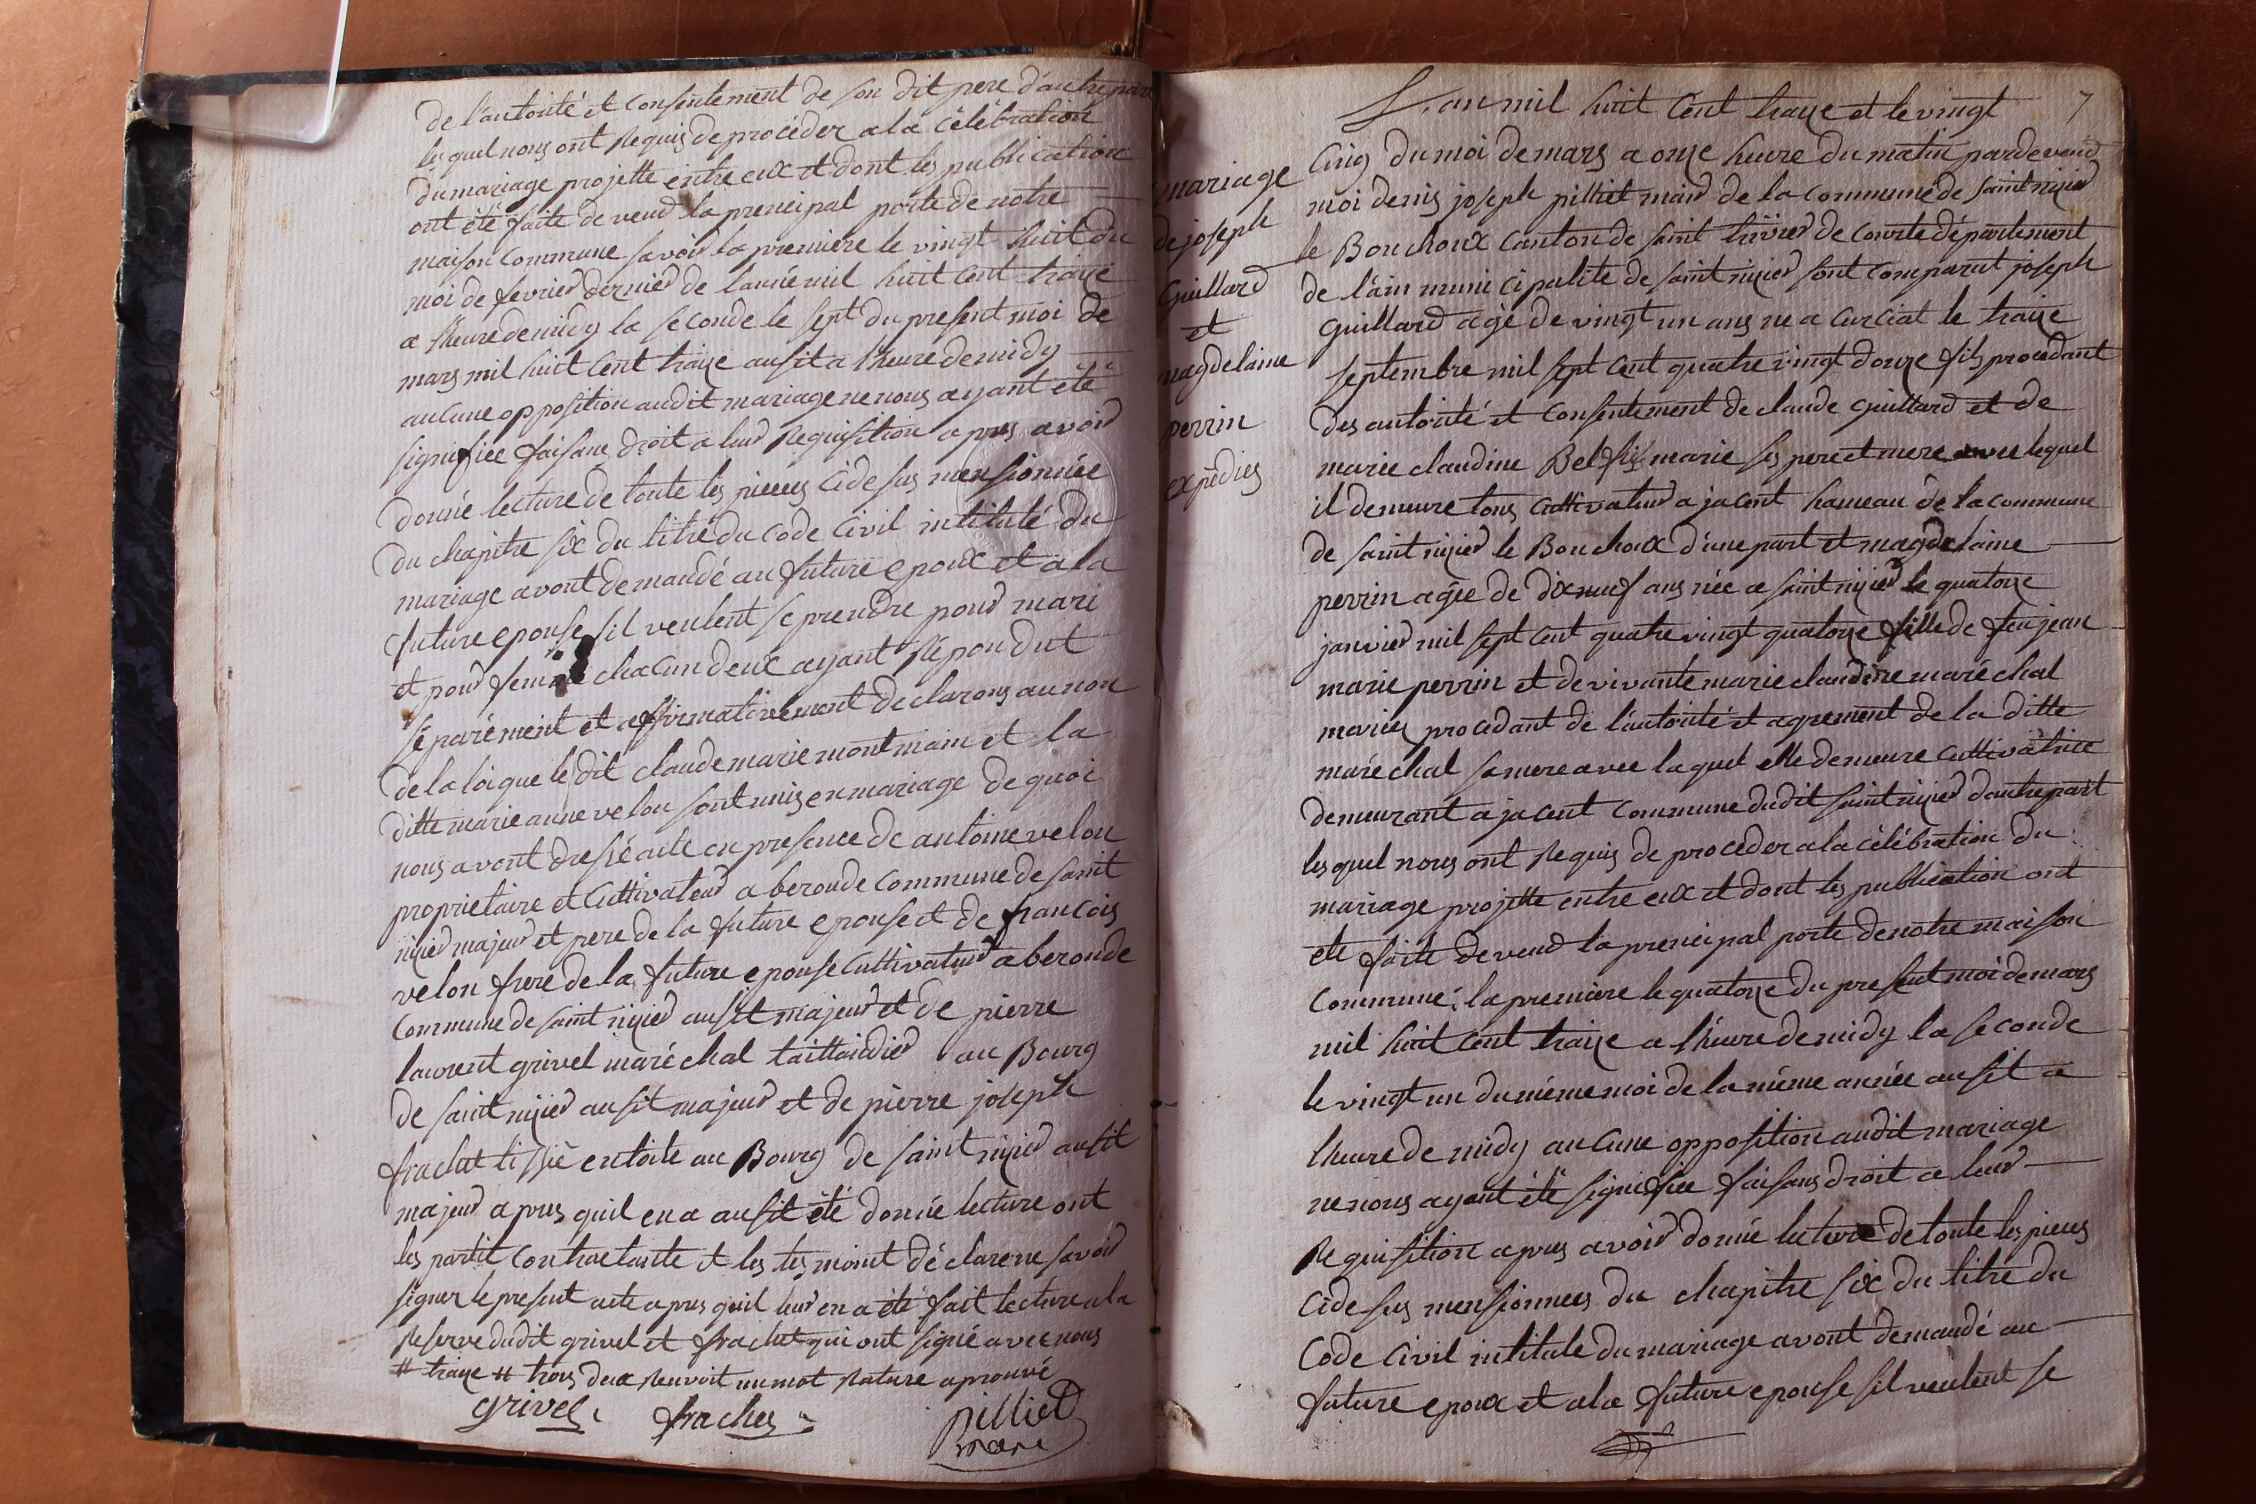 de l'autorité et consentement de son dit pere d'autre part
les quel nous ont Requis de proceder a la célébration
du mariage projetté entre eux et dont les publication
ont été faite devend la prencipal porte de notre
maison Commune savoir la premiere le vingt huit du
moi de fevrier dernier de lannée mil huit cent traize
a lheure de midy la seconde le sept du present moi de
mars mil huit cent traize ausit a lheure de midy
aucune opposition audit mariage ne nous ayant été
signifiee faisans droit a leur Requisition apres avoir
donné lecture de toute les pieces cidesus mensionnée
du chapitre six du titre du Code Civil intitulé du
mariage avont demandé au future epoux et a la
future epouse sil veulent se prendre pour mari
et pour femme chacun deux ayant Répondut
séparément et affirmativement declarons au nom
de la loi que le dit claude marie montmain et la
ditte marie anne velon sont unis en mariage de quoi
nous avont dressé acte en presence de antoine velon
proprietaire et Cultivateur a beroude commune de saint
nizier majeur et pere de la future epouse et de francois
velon frere de la future epouse Cultivateur a beroude
Commune de saint nizier ausit majeur et de pierre
laurent grivel maréchal taillandier au Bourg
de saint nizier ausit majeur et de pierre joseph
frachet tissié en toile au Bourg de saint nizier ausit
majeur apres quil en a ausit été donné lecture ont
les partit contractante et les temoint déclare ne savoir
signer le present acte apres quil leur en a été fait lecture a la
Reserve dudit grivel et frachet qui ont signé avec nous
# traize # trois deux Renvoit un mot Rature aprouvé
grivel frachet pilliet
maire
7
mariage
de joseph
Guillard
et
magdelaine
perrin
expédies
L'an mil huit Cent traize et le vingt
Cinq du moi de mars a onze heure du matin pardevend
moi denis joseph pilliet maire de la commune de saint nizier
le Bouchoux canton de saint trivier de Courte département
de l'ain municipalité de saint nizier sont comparut joseph
guillard agé de vingt un ans né a Curciat le traize
septembre mil sept cent quatre vingt douze fils procedant
des autorité et consentement de claude guillard et de
marie claudine Bel marie ses pere et mere avec lequel
il demeure tous Cultivateur a jacent hameau de la commune
de saint nizier le Bouchoux d'une part et magdelaine
perrin agée de dix neuf ans née a saint nizier le quatorze
janvier mil sept cent quatre vingt quatorze fille de feu jean
marie perrin et de vivante marie claudine maréchal
mariés procedant de l'autorité et agrement de la ditte
maréchal sa mere avec laquel elle demeure cultivatrice
demeurant a jacent commune dudit saint nizier dautre part
les quel nous ont Requis de proceder a la célébration du
mariage projetté entre eux et dont les publication ont
eté faite devend la prencipal porte de notre maison
Commune, la premiere le quatorze du present moi de mars
mil huit cent traize a lheure de midy la seconde
le vingt un du même moi de la même année ausit a
lheure de midy aucune opposition audit mariage
ne nous ayant été signifiee faisans droit a leur
Requisition apres avoir donné lecture de toute les pieces
cidesus mensionnees du chapitre six du titre du
Code Civil intitulé du mariage avont demandé au
future epoux et a la future epouse sil veulent se